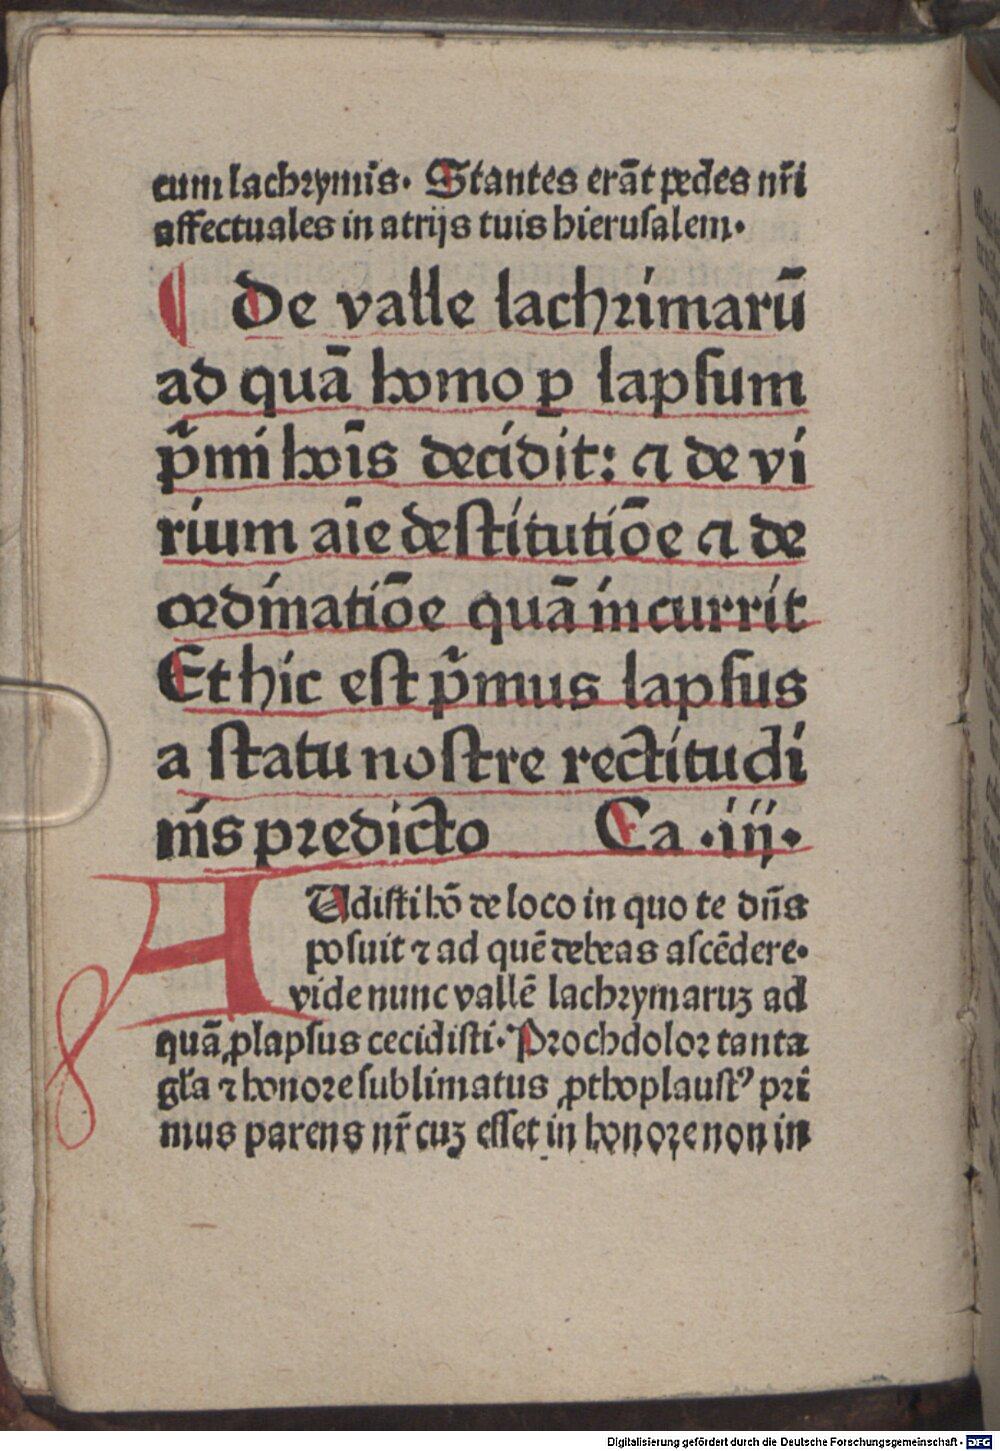 cum lachrymis. Stantes erāt pedes nr̄i
affectuales in atrijs tuis hierusalem.
¶ De valle lachrimarū
ad quā homo ꝑ lapsum
pͥmi hoīs decidit: ⁊ de vi
rium aīe destitutiōe ⁊ de
ordinatiōe quā incurrit
Et hic est pͥmus lapsus
a statu nostre rectitudi
nis predicto Ca .iij.
AUdisti hō de loco in quo te dn̄s
posuit ⁊ ad quē debeas ascēdere.
vide nunc vallē lachrymaruꝫ ad
quā ꝓlapsus cecidisti. Proch dolor tanta
gl̄a ⁊ honore sublimatus ꝓthoplaustꝰ pri
mus parens nr̄ cuꝫ esset in honore non in
Digitalisierung gefördert durch die Deutsche Forschungsgemeinschaft - DFG